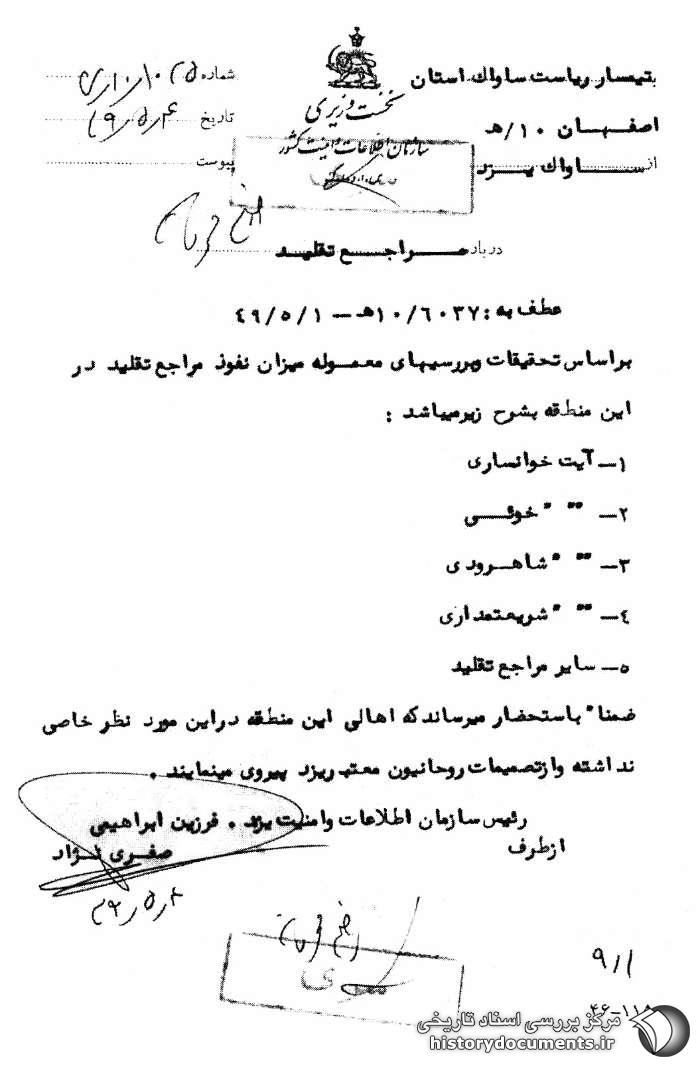 نخست وزیری
سازمان اطلاعات و امنیت کشور
بتیمسار ریاست ساواك استان
اصفهان ۱۰/ه‍
از ساواك یزد
شماره
تاریخ ۴۹/۵/۴
پیوست
درباره مراجع تقلید
عطف به : ۱۰/۶۰۳۷ه‍ – ۴۹/۵/۱
براساس تحقیقات وبررسیهای معموله میزان نفوذ مراجع تقلید در
این منطقه بشرح زیرمیباشد :
۱– آیت خوانساری
۲– " " خوئی
۳– " " شاهرودی
۴– " " شریعتمداری
۵– سایر مراجع تقلید
ضمنا" باستحضار میرساندکه اهالی این منطقه دراین مورد نظر خاصی
نداشته وازتصمیمات روحانیون معتبریزد پیروی مینمایند .
رئیس سازمان اطلاعات وامنیت یزد . فرزین ابراهیمی
ازطرف صفری نژاد
۴۹/۵/۴
سری
۹/۱
مرکز بررسی اسناد تاریخی
historydocuments.ir